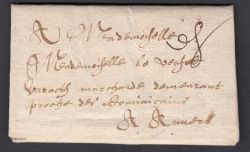 A Mademoiselle
A Mademoiselle de
marchande demeurant
proche des Dominicains
A Anvers